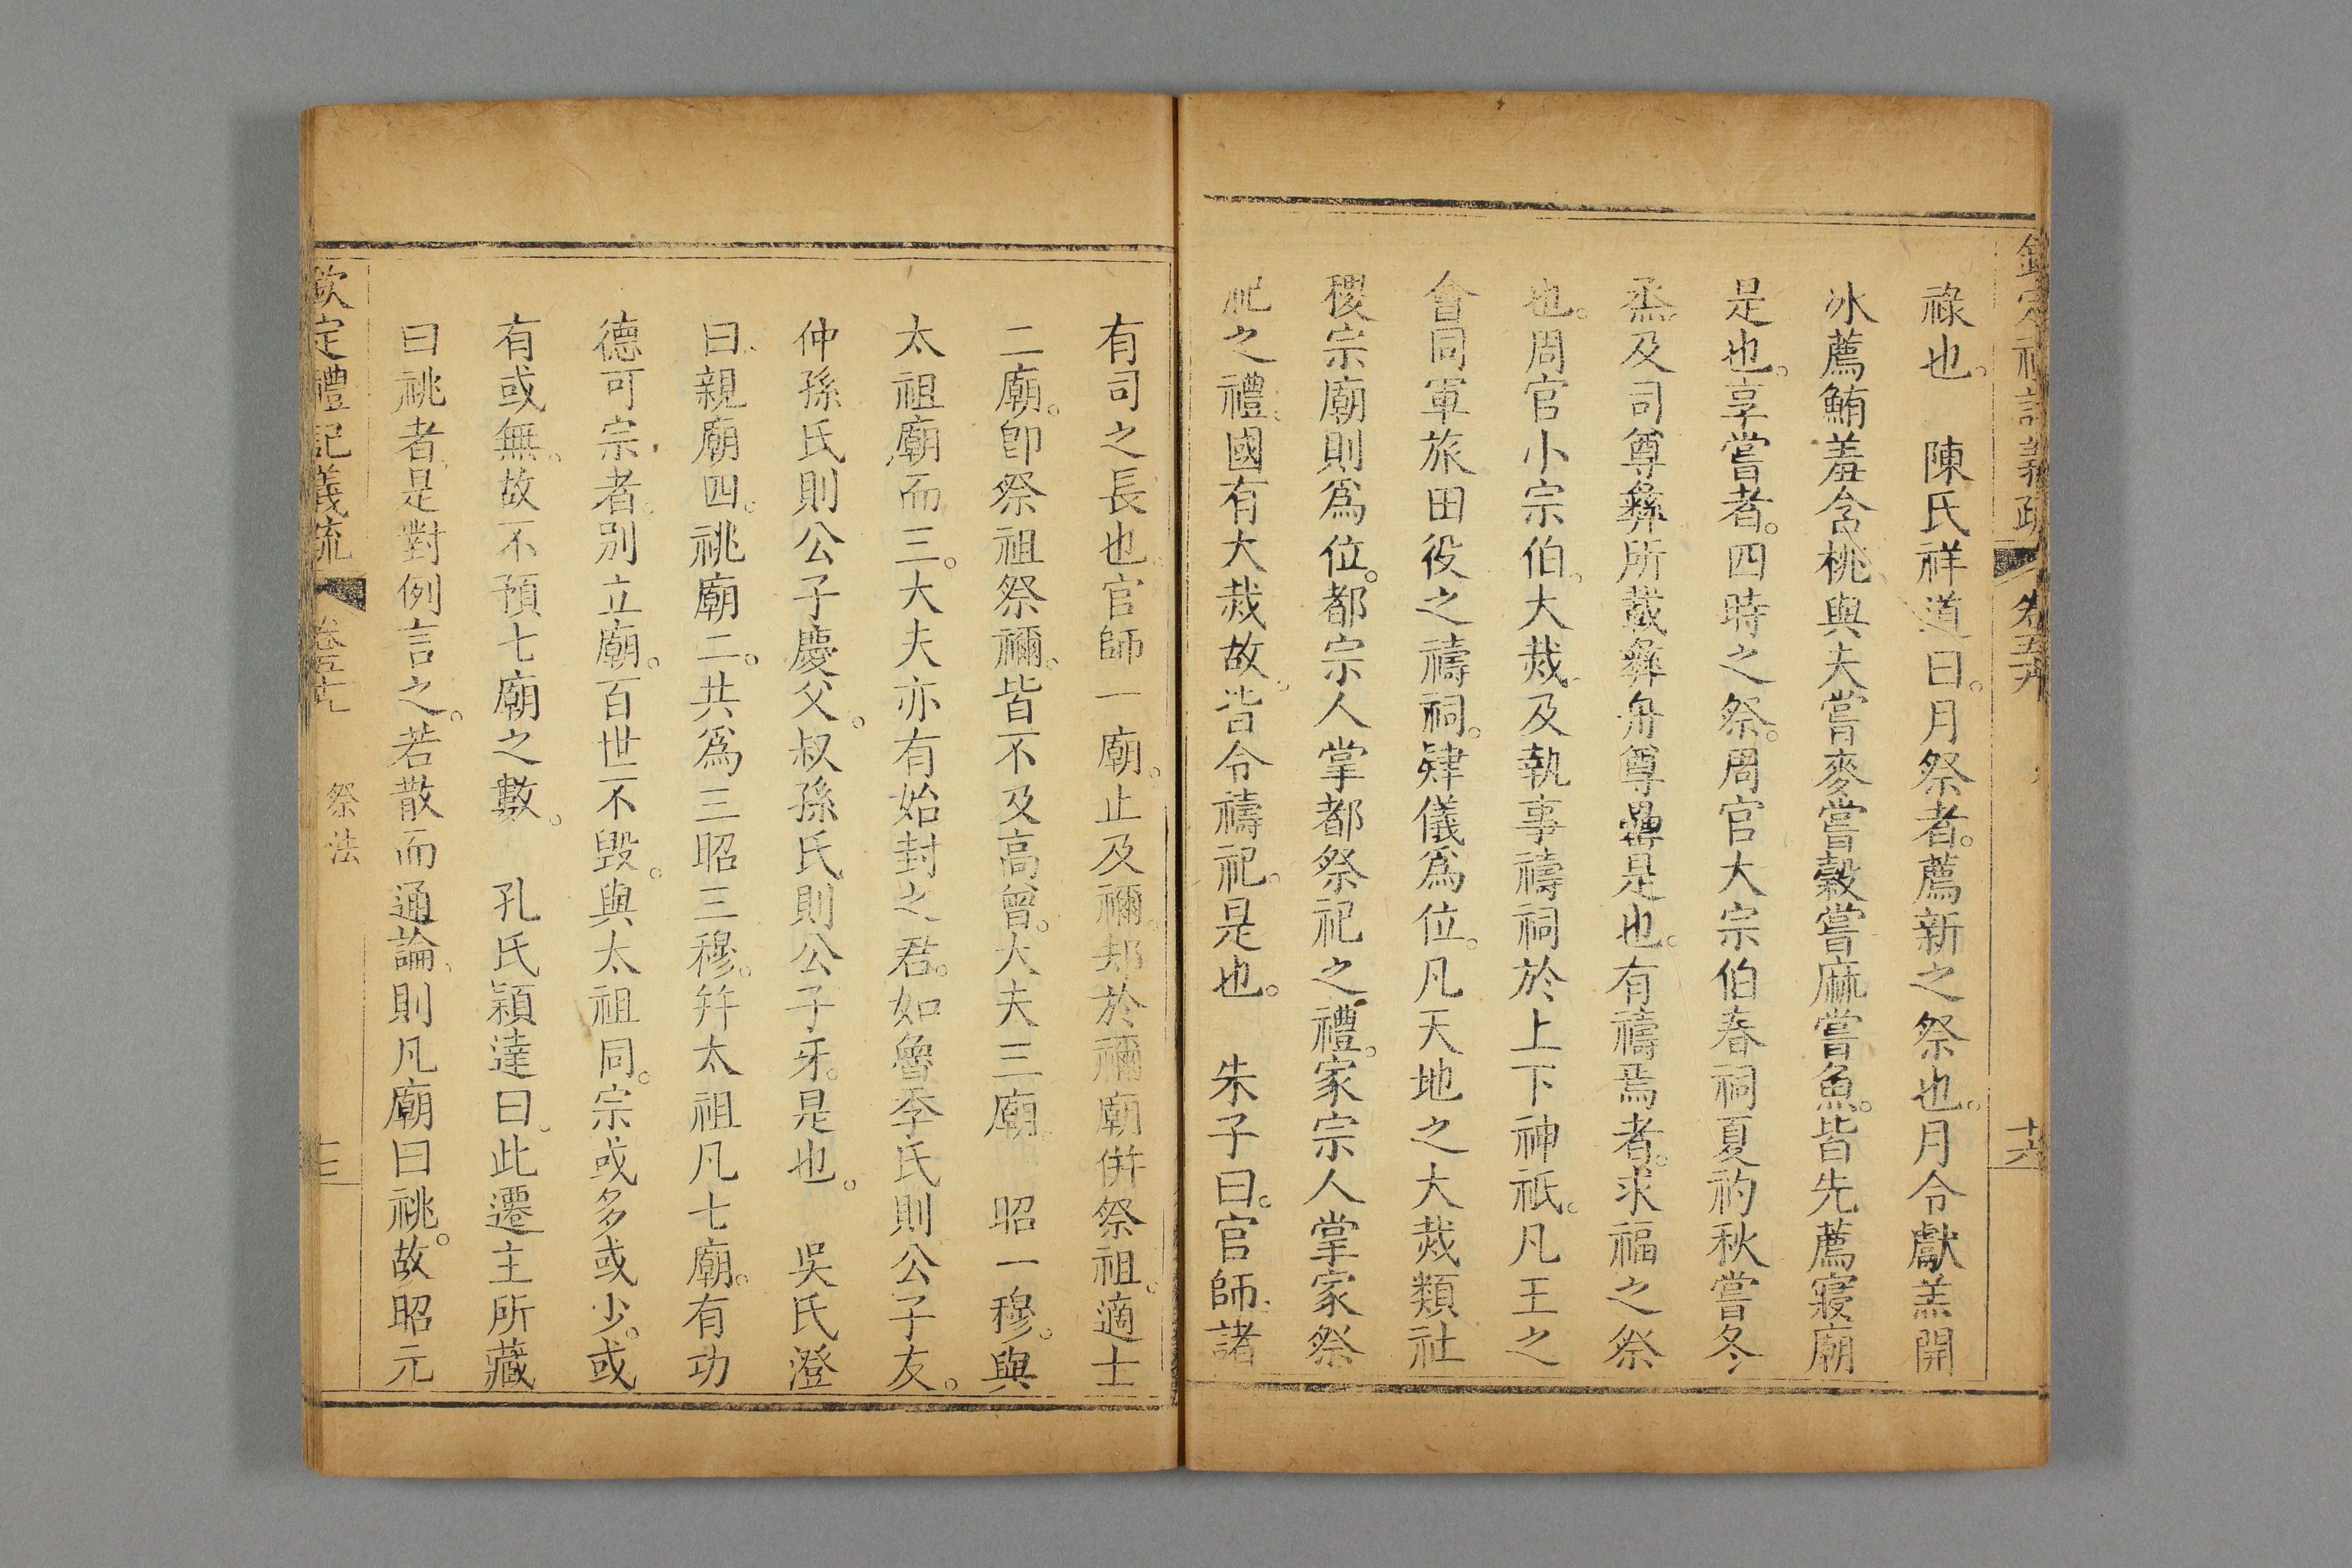 欽定禮記義疏 卷五十九 十六
祿也。　陳氏祥道曰。月祭者。薦新之祭也。月令獻羔開
冰薦鮪羞含桃、與夫嘗麥嘗穀嘗麻嘗魚。皆先薦寢廟
是也。享嘗者。四時之祭。周官大宗伯春祠夏礿秋嘗冬
烝、及司尊彝所載彝舟尊罍是也。有禱焉者。求福之祭
也。周官小宗伯、大烖、及執事禱祠於上下神祇。凡王之
會同軍旅田役之禱祠。肄儀爲位。凡天地之大烖類社
稷宗廟則爲位。都宗人掌都祭祀之禮。家宗人掌家祭
祀之禮、國有大烖故。皆令禱祀。是也。　朱子曰。官師、諸
有司之長也、官師一廟。止及禰。却於禰廟併祭祖。適士
二廟。卽祭祖祭禰。皆不及高曾。大夫三廟。　昭一穆。與
太祖廟而三。大夫亦有始封之君。如魯季氏則公子友。
仲孫氏則公子慶父。叔孫氏則公子牙。是也。　吳氏澄
曰、親廟四。祧廟二。共爲三昭三穆。幷太祖凡七廟。有功
德可宗者。别立廟。百世不毀。與太祖同。宗或多或少。或
有或無。故不預七廟之數。　孔氏穎達曰。此遷主所藏
曰祧者、是對例言之。若散而通論、則凡廟曰祧。故昭元
欽定禮記義疏 祭法